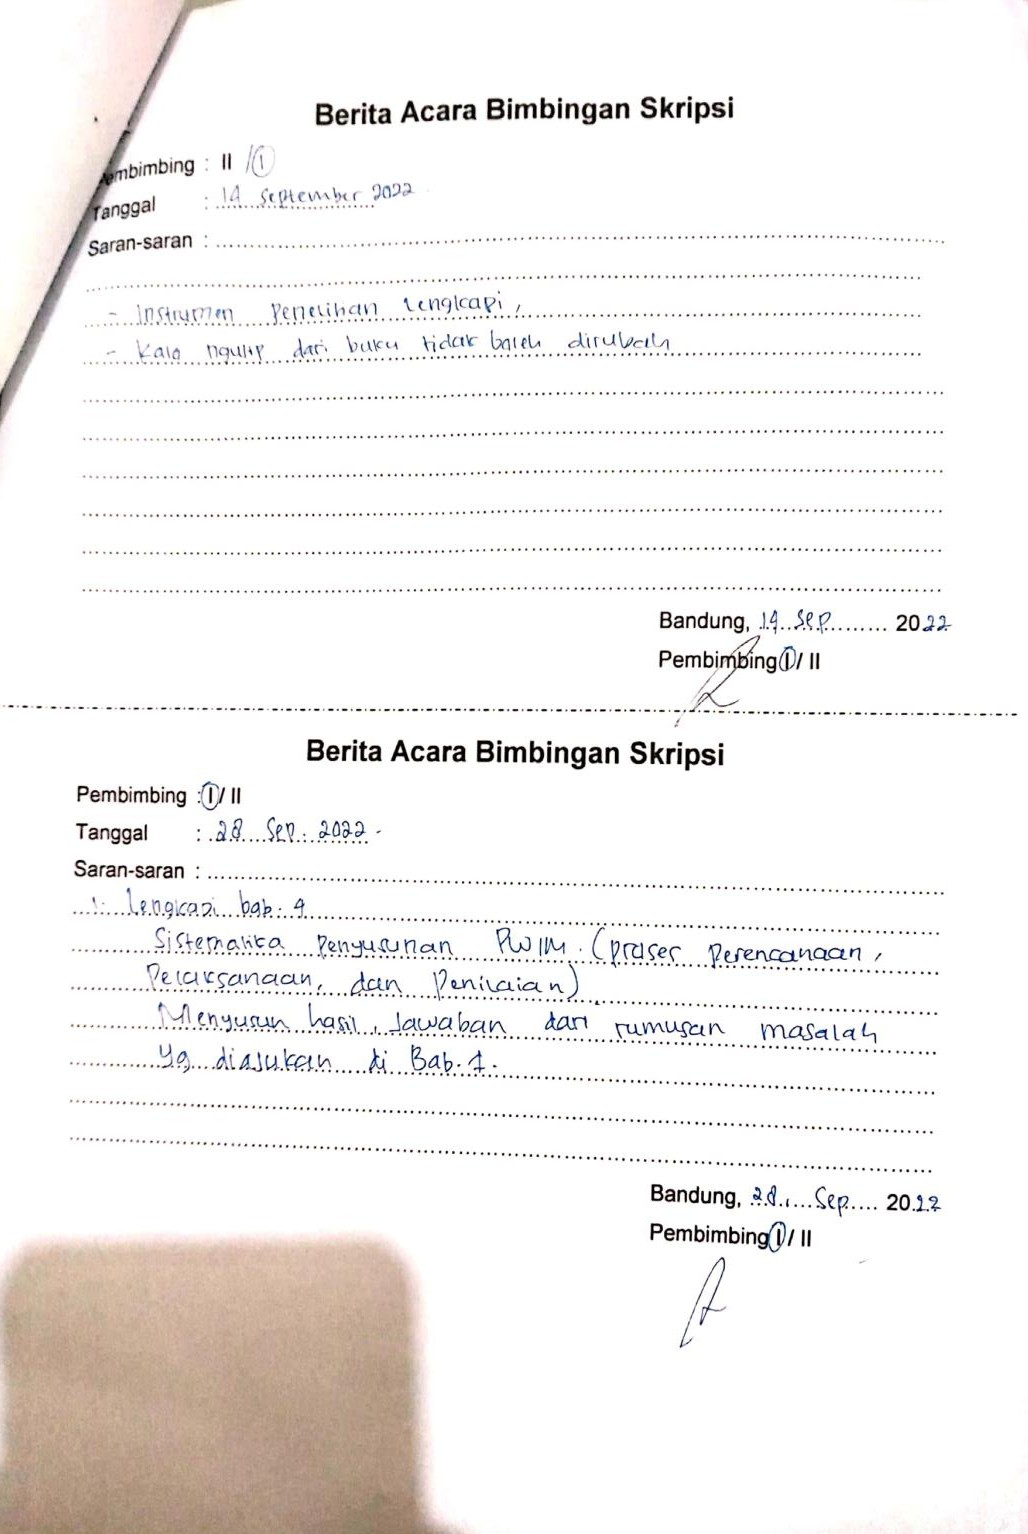 Berita Acara Bimbingan Skripsi
embimbing : II / I
Tanggal : 14 September 2022
Saran-saran :
- Instrumen Penelitian Lengkapi,
- Kalo ngutip dari buku tidak boleh dirubah
Bandung, 14 Sep 2022
Pembimbing I / II
Berita Acara Bimbingan Skripsi
Pembimbing : I / II
Tanggal : 28 Sep. 2022.
Saran-saran :
1. Lengkapi bab. 4
Sistematika Penyusunan (proses Perencanaan,
Pelaksanaan, dan Penilaian)
Menyusun hasil, Jawaban dari rumusan masalah
yg diajukan di Bab. 1.
Bandung, 28, Sep 2022
Pembimbing I / II